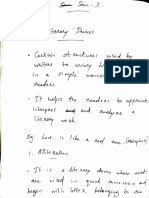 Sem - 3
Literary Devices
• Certain structures used by
writers to convey
in a simple manner
readers
• It helps the readers to appreciate
interpret and analyse a
literary work.
Eg: Love is like a red rose. (
1. Alliteration
• It is a literary device where words
are used in quick succession and
begin with letters belonging to the